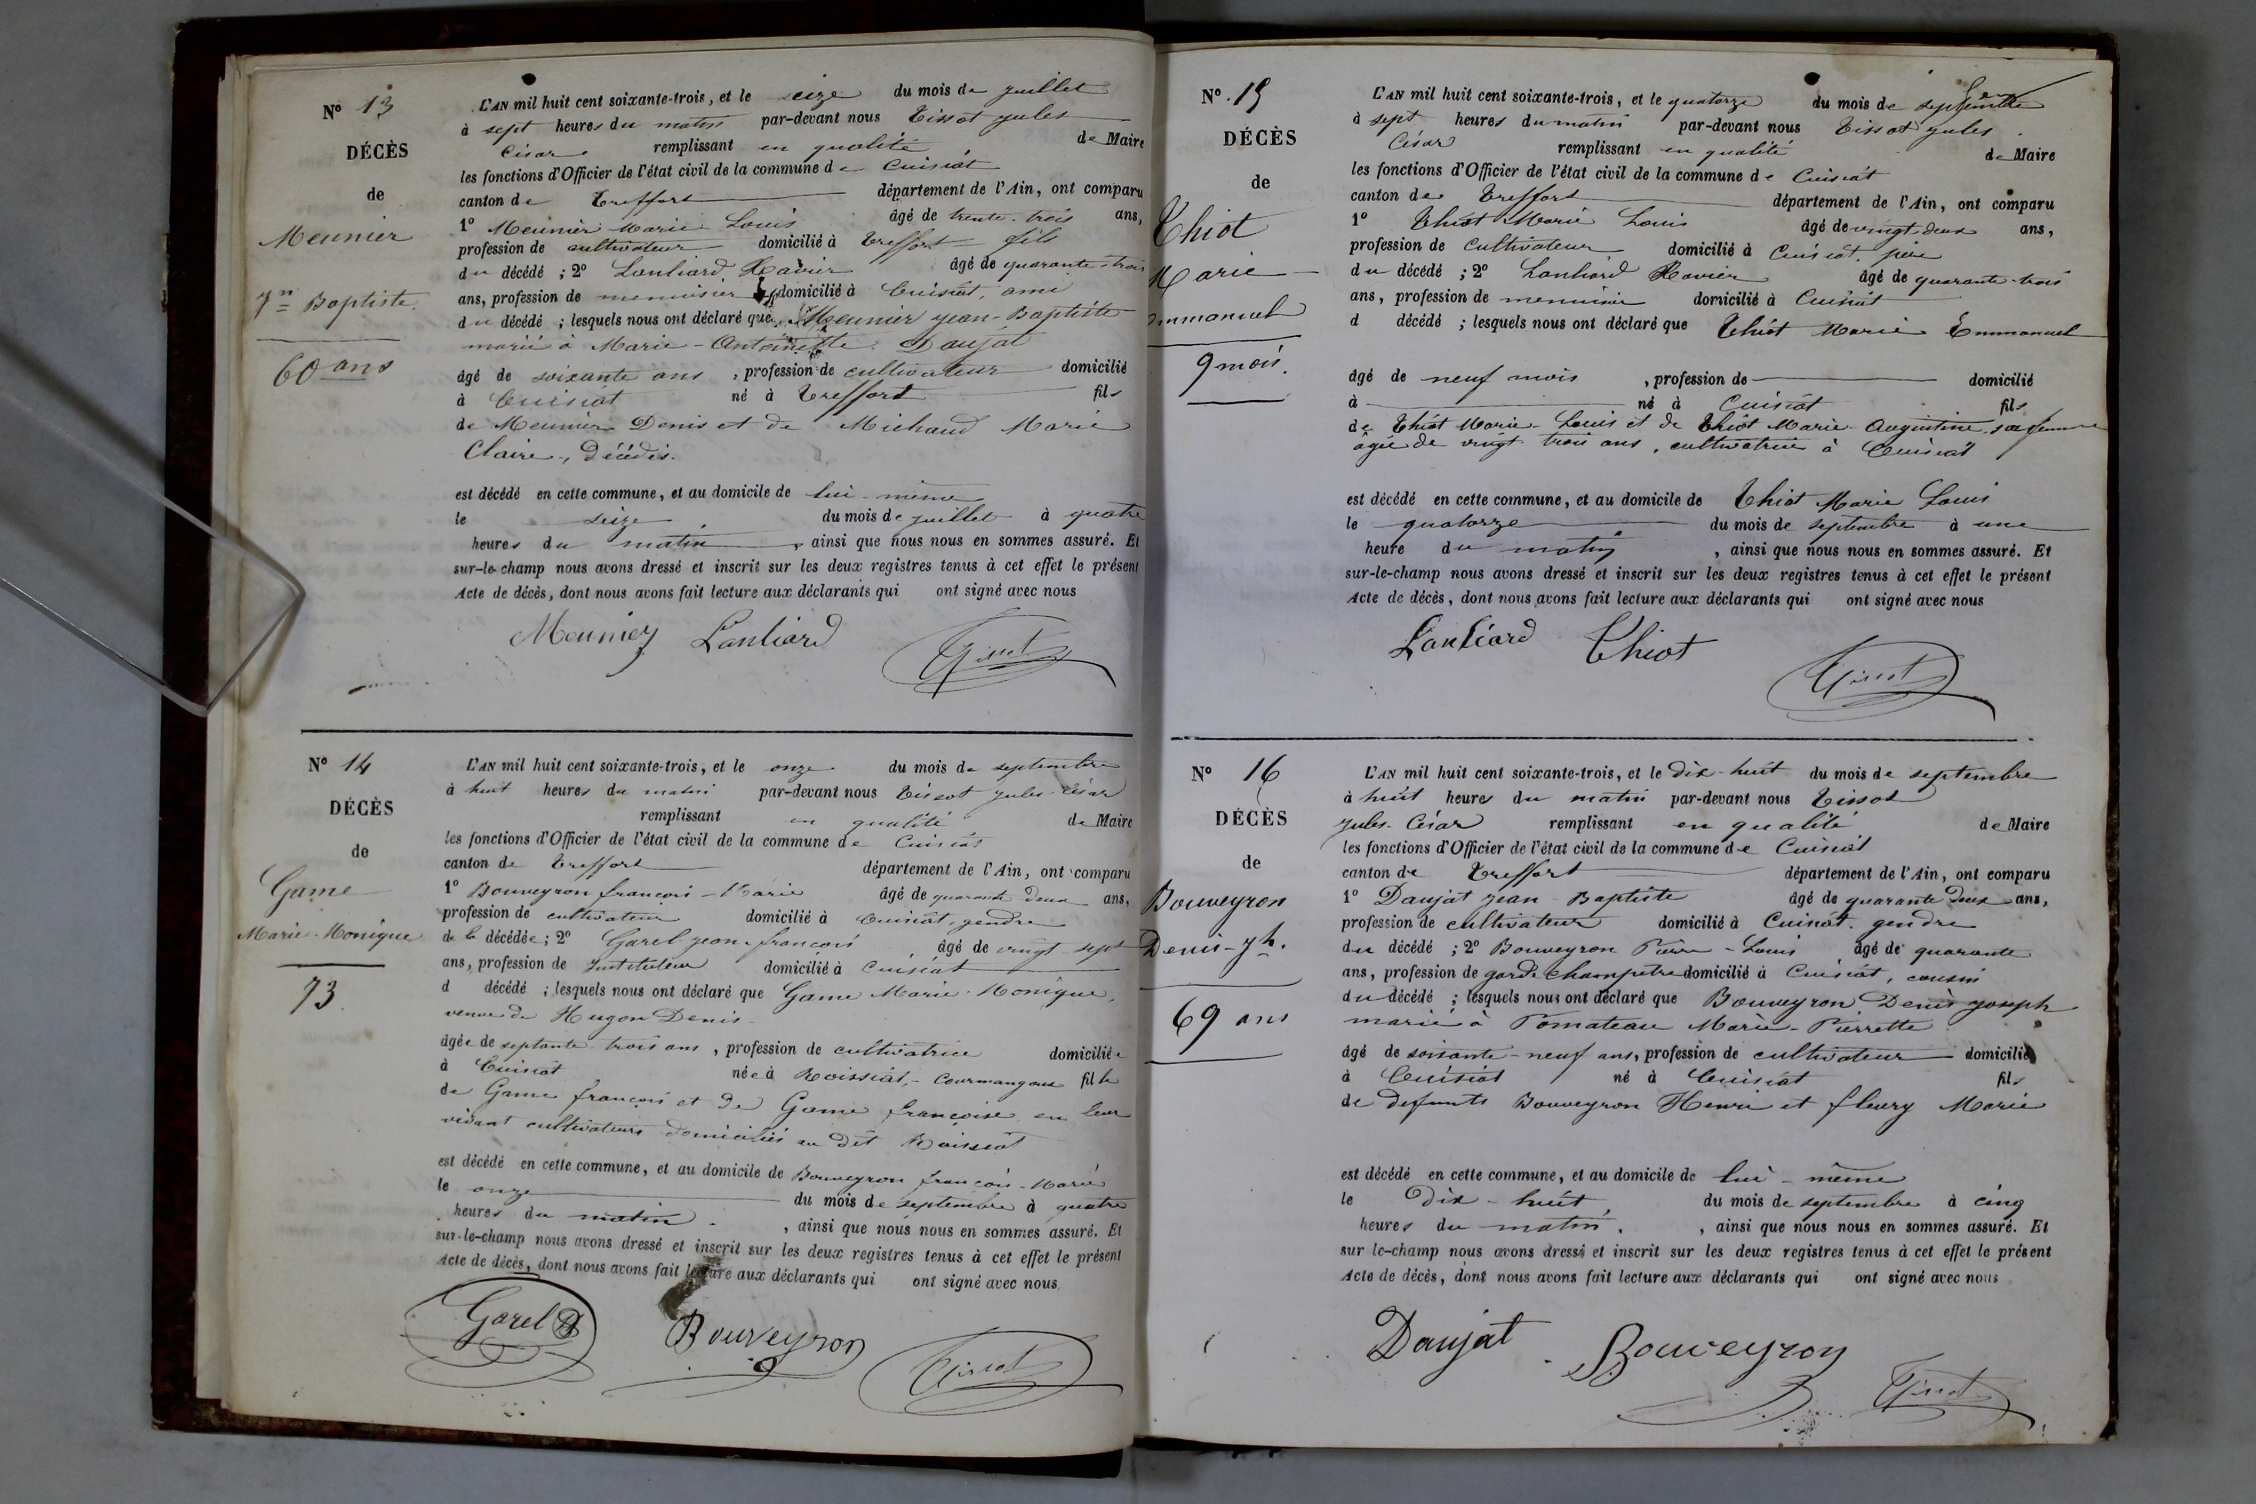 N° 13
DÉCÈS
de
Meunier
Jn Baptiste
60 ans
L'AN mil huit cent soixante-trois, et le seize du mois de juillet
à sept heures du matin par-devant nous Tissot jules
César remplissant en qualité de Maire
les fonctions d'Officier de l'état civil de la commune de Cuisiat
canton de Treffort département de l'Ain, ont comparu
1° Meunier Marie Louis âgé de trente-trois ans,
profession de cultivateur domicilié à Treffort fils
du décédé ; 2° Lanliard Xavier âgé de quarante-trois
ans, profession de menuisier domicilié à Cuisiat, ami
du décédé ; lesquels nous ont déclaré que Meunier jean-Baptiste
marié à Marie-Antoinette Daujat
âgé de soixante ans , profession de cultivateur domicilié
à Cuisiat né à Treffort fils
de Meunier Denis et de Michaud Marie
Claire, Décédés.
est décédé en cette commune, et au domicile de lui-même
le seize du mois de juillet à quatre
heures du matin , ainsi que nous nous en sommes assuré. Et
sur-le-champ nous avons dressé et inscrit sur les deux registres tenus à cet effet le présent
Acte de décès, dont nous avons fait lecture aux déclarants qui ont signé avec nous
Meunier Lanliard Tissot
N° 14
DÉCÈS
de
Game
Marie-Monique
73
L'AN mil huit cent soixante-trois, et le onze du mois de septembre
à huit heures du matin par-devant nous Tissot jules-César
remplissant en qualité de Maire
les fonctions d'Officier de l'état civil de la commune de Cuisiat
canton de Treffort département de l'Ain, ont comparu
1° Bouveyron françois-Marie âgé de quarante deux ans,
profession de cultivateur domicilié à Cuisiat, gendre
de la décédée ; 2° Garel jean-françois âgé de vingt-sept
ans, profession de Instituteur domicilié à Cuisiat
d décédé ; lesquels nous ont déclaré que Game Marie-Monique,
veuve de Hugon Denis
âgée de septante-trois ans , profession de cultivatrice domiciliée
à Cuisiat née à Roissiat,-Courmangoux fille
de Game françois et de Game françoise en leur
vivant cultivateurs domiciliés au dit Roissiat
est décédé en cette commune, et au domicile de Bouveyron françois-Marie
le onze du mois de septembre à quatre
heures du matin , ainsi que nous nous en sommes assuré. Et
sur-le-champ nous avons dressé et inscrit sur les deux registres tenus à cet effet le présent
Acte de décès, dont nous avons fait lecture aux déclarants qui ont signé avec nous
Garel Bouveyron Tissot
N° 15
DÉCÈS
de
Thiot
Marie
Emmanuel
9 mois.
L'AN mil huit cent soixante-trois, et le quatorze du mois de septembre
à sept heures du matin par-devant nous Tissot jules
César remplissant en qualité de Maire
les fonctions d'Officier de l'état civil de la commune de Cuisiat
canton de Treffort département de l'Ain, ont comparu
1° Thiot Marie Louis âgé de vingt-deux ans,
profession de Cultivateur domicilié à Cuisiat. père
du décédé ; 2° Lanliard Xavier âgé de quarante-trois
ans, profession de menuisier domicilié à Cuisiat
d décédé ; lesquels nous ont déclaré que Thiot Marie Emmanuel
âgé de neuf mois , profession de domicilié
à né à Cuisiat fils
de Thiot Marie-Louis et de Thiot Marie-Augustine sa femme
âgée de vingt-trois ans, cultivatrice à Cuisiat
est décédé en cette commune, et au domicile de Thiot Marie Louis
le quatorze du mois de septembre à une
heure du matin , ainsi que nous nous en sommes assuré. Et
sur-le-champ nous avons dressé et inscrit sur les deux registres tenus à cet effet le présent
Acte de décès, dont nous avons fait lecture aux déclarants qui ont signé avec nous
Lanliard Thiot Tissot
N° 16
DÉCÈS
de
Bouveyron
Denis-jh.
69 ans
L'AN mil huit cent soixante-trois, et le dix-huit du mois de septembre
à huit heures du matin par-devant nous Tissot
Jules-César remplissant en qualité de Maire
les fonctions d'Officier de l'état civil de la commune de Cuisiat
canton de Treffort département de l'Ain, ont comparu
1° Daujat jean-Baptiste âgé de quarante deux ans,
profession de cultivateur domicilié à Cuisiat. gendre
du décédé ; 2° Bouveyron Pierre-Louis âgé de quarante
ans, profession de garde champêtre domicilié à Cuisiat, cousin
du décédé ; lesquels nous ont déclaré que Bouveyron Denis joseph
marié à Pomateau Marie-Pierrette
âgé de soixante-neuf ans, profession de cultivateur domicilié
à Cuisiat né à Cuisiat fils
de défunts Bouveyron Henri et fleury Marie
est décédé en cette commune, et au domicile de lui-même
le Dix-huit du mois de septembre à cinq
heures du matin. , ainsi que nous nous en sommes assuré. Et
sur le-champ nous avons dressé et inscrit sur les deux registres tenus à cet effet le présent
Acte de décès, dont nous avons fait lecture aux déclarants qui ont signé avec nous
Daujat Bouveyron Tissot